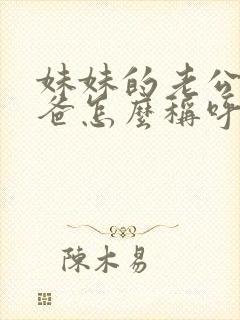 妹妹的老公
爸怎麼稱呼
陳木易